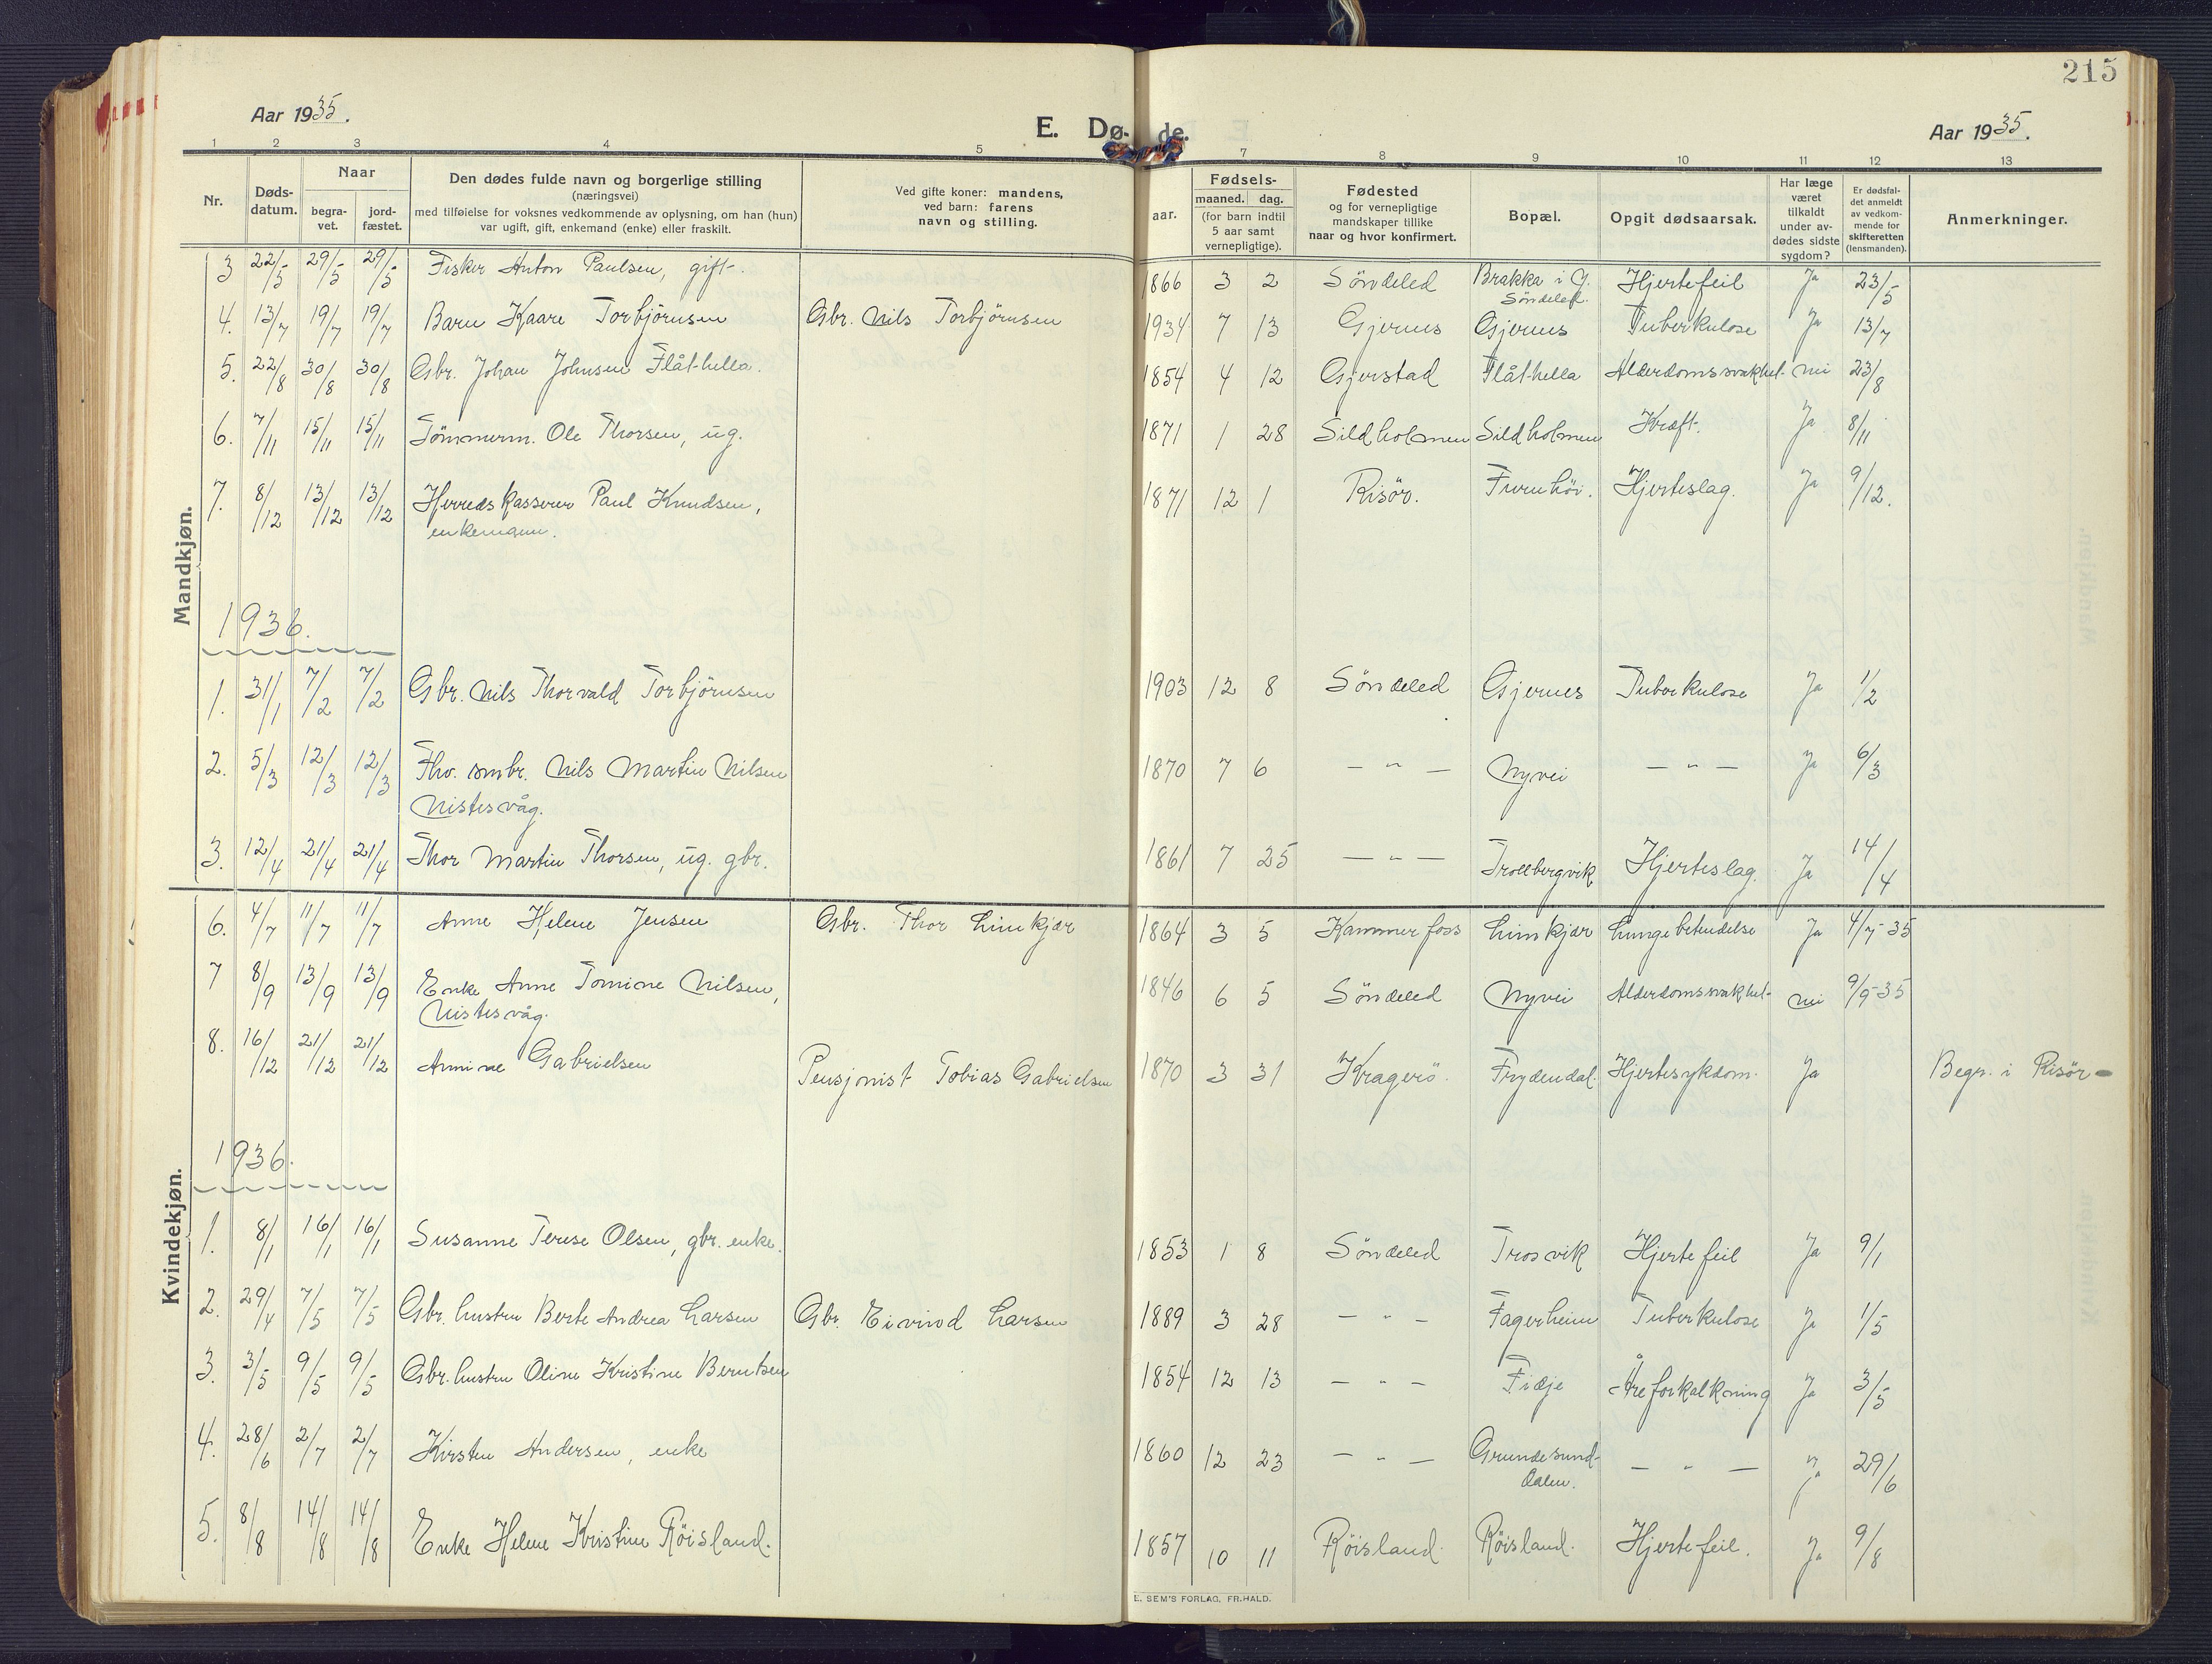 215
Aar 1935.
E. Dø- de.
Aar 1935.
1 2 3 4 5 7 8 9 10 11 12 13
Nr.
Døds-
datum.
Naar
begra-
vet.
jord-
fæstet.
Den dødes fulde navn og borgerlige stilling
(næringsvei)
med tilføielse for voksnes vedkommende av oplysning, om han (hun)
var ugift, gift, enkemand (enke) eller fraskilt.
Ved gifte koner: mandens,
ved barn: farens
navn og stilling.
aar.
Fødsels-
maaned. dag.
(for barn indtil
5 aar samt
vernepligtige).
Fødested
og for vernepligtige
mandskaper tillike
naar og hvor konfirmert.
Bopæl.
Opgit dødsaarsak.
Har læge
været
tilkaldt
under av-
dødes sidste
sygdom?
Er dødsfal-
det anmeldt
av vedkom-
mende for
skifteretten
(lensmanden).
Anmerkninger.
Mandkjøn.
3 22/5 29/5 29/5 Fisker Anton Paulsen, gift. 1866 3 2 Söndeled Brakka i G. Hjertefeil Ja 23/5
Söndeled.
4. 13/7 19/7 19/7 Barn Kaare Torbjörnsen Gbr. Nils Torbjörnsen 1934 7 13 Gjernes Gjernes Tuberkulose Ja 13/7
5. 22/8 30/8 30/8 Gbr. Johan Johnsen Flåthella. 1854 4 12 Gjerstad Flåthella Alderdomssvakhet. nei 23/8
6. 7/11 15/11 15/11 Tömmerm. Ole Thorsen, ug. 1871 1 28 Sildholmen Sildholmen Kræft. Ja 8/11
7. 8/12 13/12 13/12 Herredskasserer Paul Knudsen, 1871 12 1 Risör. Furuhöi. Hjerteslag. Ja 9/12.
enkemann.
1936.
1. 31/1 7/2 7/2 Gbr. Nils Thorvald Torbjörnsen 1903 12 8 Söndeled Gjernes Tuberkulose Ja 1/2
2. 5/3 12/3 12/3 Fhv. smbr. Nils Martin Nilsen 1870 7 6 — " — Nyvei — " — Ja 6/3
Nistesvåg.
3. 12/4 21/4 21/4 Thor Martin Thorsen, ug. gbr. 1861 7 25 — " — Trollbergvik Hjerteslag. Ja 14/4
Kvindekjøn.
6. 4/7 11/7 11/7 Anne Helene Jensen Gbr. Thor Limkjær 1864 3 5 Kammerfoss Limkjær Lungebetendelse Ja 4/7-35
7 8/9 13/9 13/9 Enke Anne Tomine Nilsen, 1846 6 5 Söndeled Nyvei Alderdomssvakhet. nei 9/9-35
Nistesvåg.
8. 16/12 21/12 21/12 Annine Gabrielsen Pensjonist Tobias Gabrielsen 1870 3 31 Kragerö. Frydendal. Hjertesykdom. Ja Begr. i Risör -
1936.
1. 8/1 16/1 16/1 Susanne Terese Olsen, gbr. enke. 1853 1 8 Söndeled Trosvik Hjertefeil Ja 9/1
2. 29/4 7/5 7/5 Gbr. hustru Berte Andrea Larsen Gbr. Eivind Larsen 1889 3 28 — " — Fagerheim Tuberkulose Ja 1/5
3. 3/5 9/5 9/5 Gbr. hustru Oline Kristine Berntsen 1854 12 13 — " — Fidje Åreforkalkning Ja 3/5
4. 28/6 2/7 2/7 Kirsten Andersen, enke 1860 12 23 — " — Grundesund- — " — Ja 29/6
dalen.
5. 8/8 14/8 14/8 Enke Helene Kristine Röisland. 1857 10 11 Röisland. Röisland. Hjertefeil. Ja 9/8
E. SEM'S FORLAG, FR.HALD.